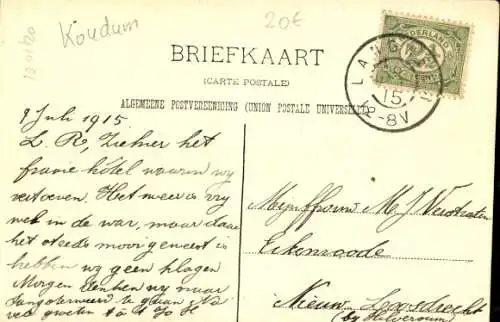 Koudum
20€
BRIEFKAART
(CARTE POSTALE)
ALGEMEENE POSTVEREENIGING (UNION POSTALE UNIVERSELLE)
NEDERLAND
LANGW
15.
-8V
9 Juli 1915
L. R, Ziehier het
fraaie hôtel waarin wij
vertoeven. Het weer is vrij
wel in de war, maar daar
het steeds mooi geweest is
hebben wij geen klagen
Morgen denken wij naar
te gaan
veel groeten
Mejuffrouw M. J. Verstraten
Eikenroode
Nieuw Loosdrecht
(bij Hilversum)